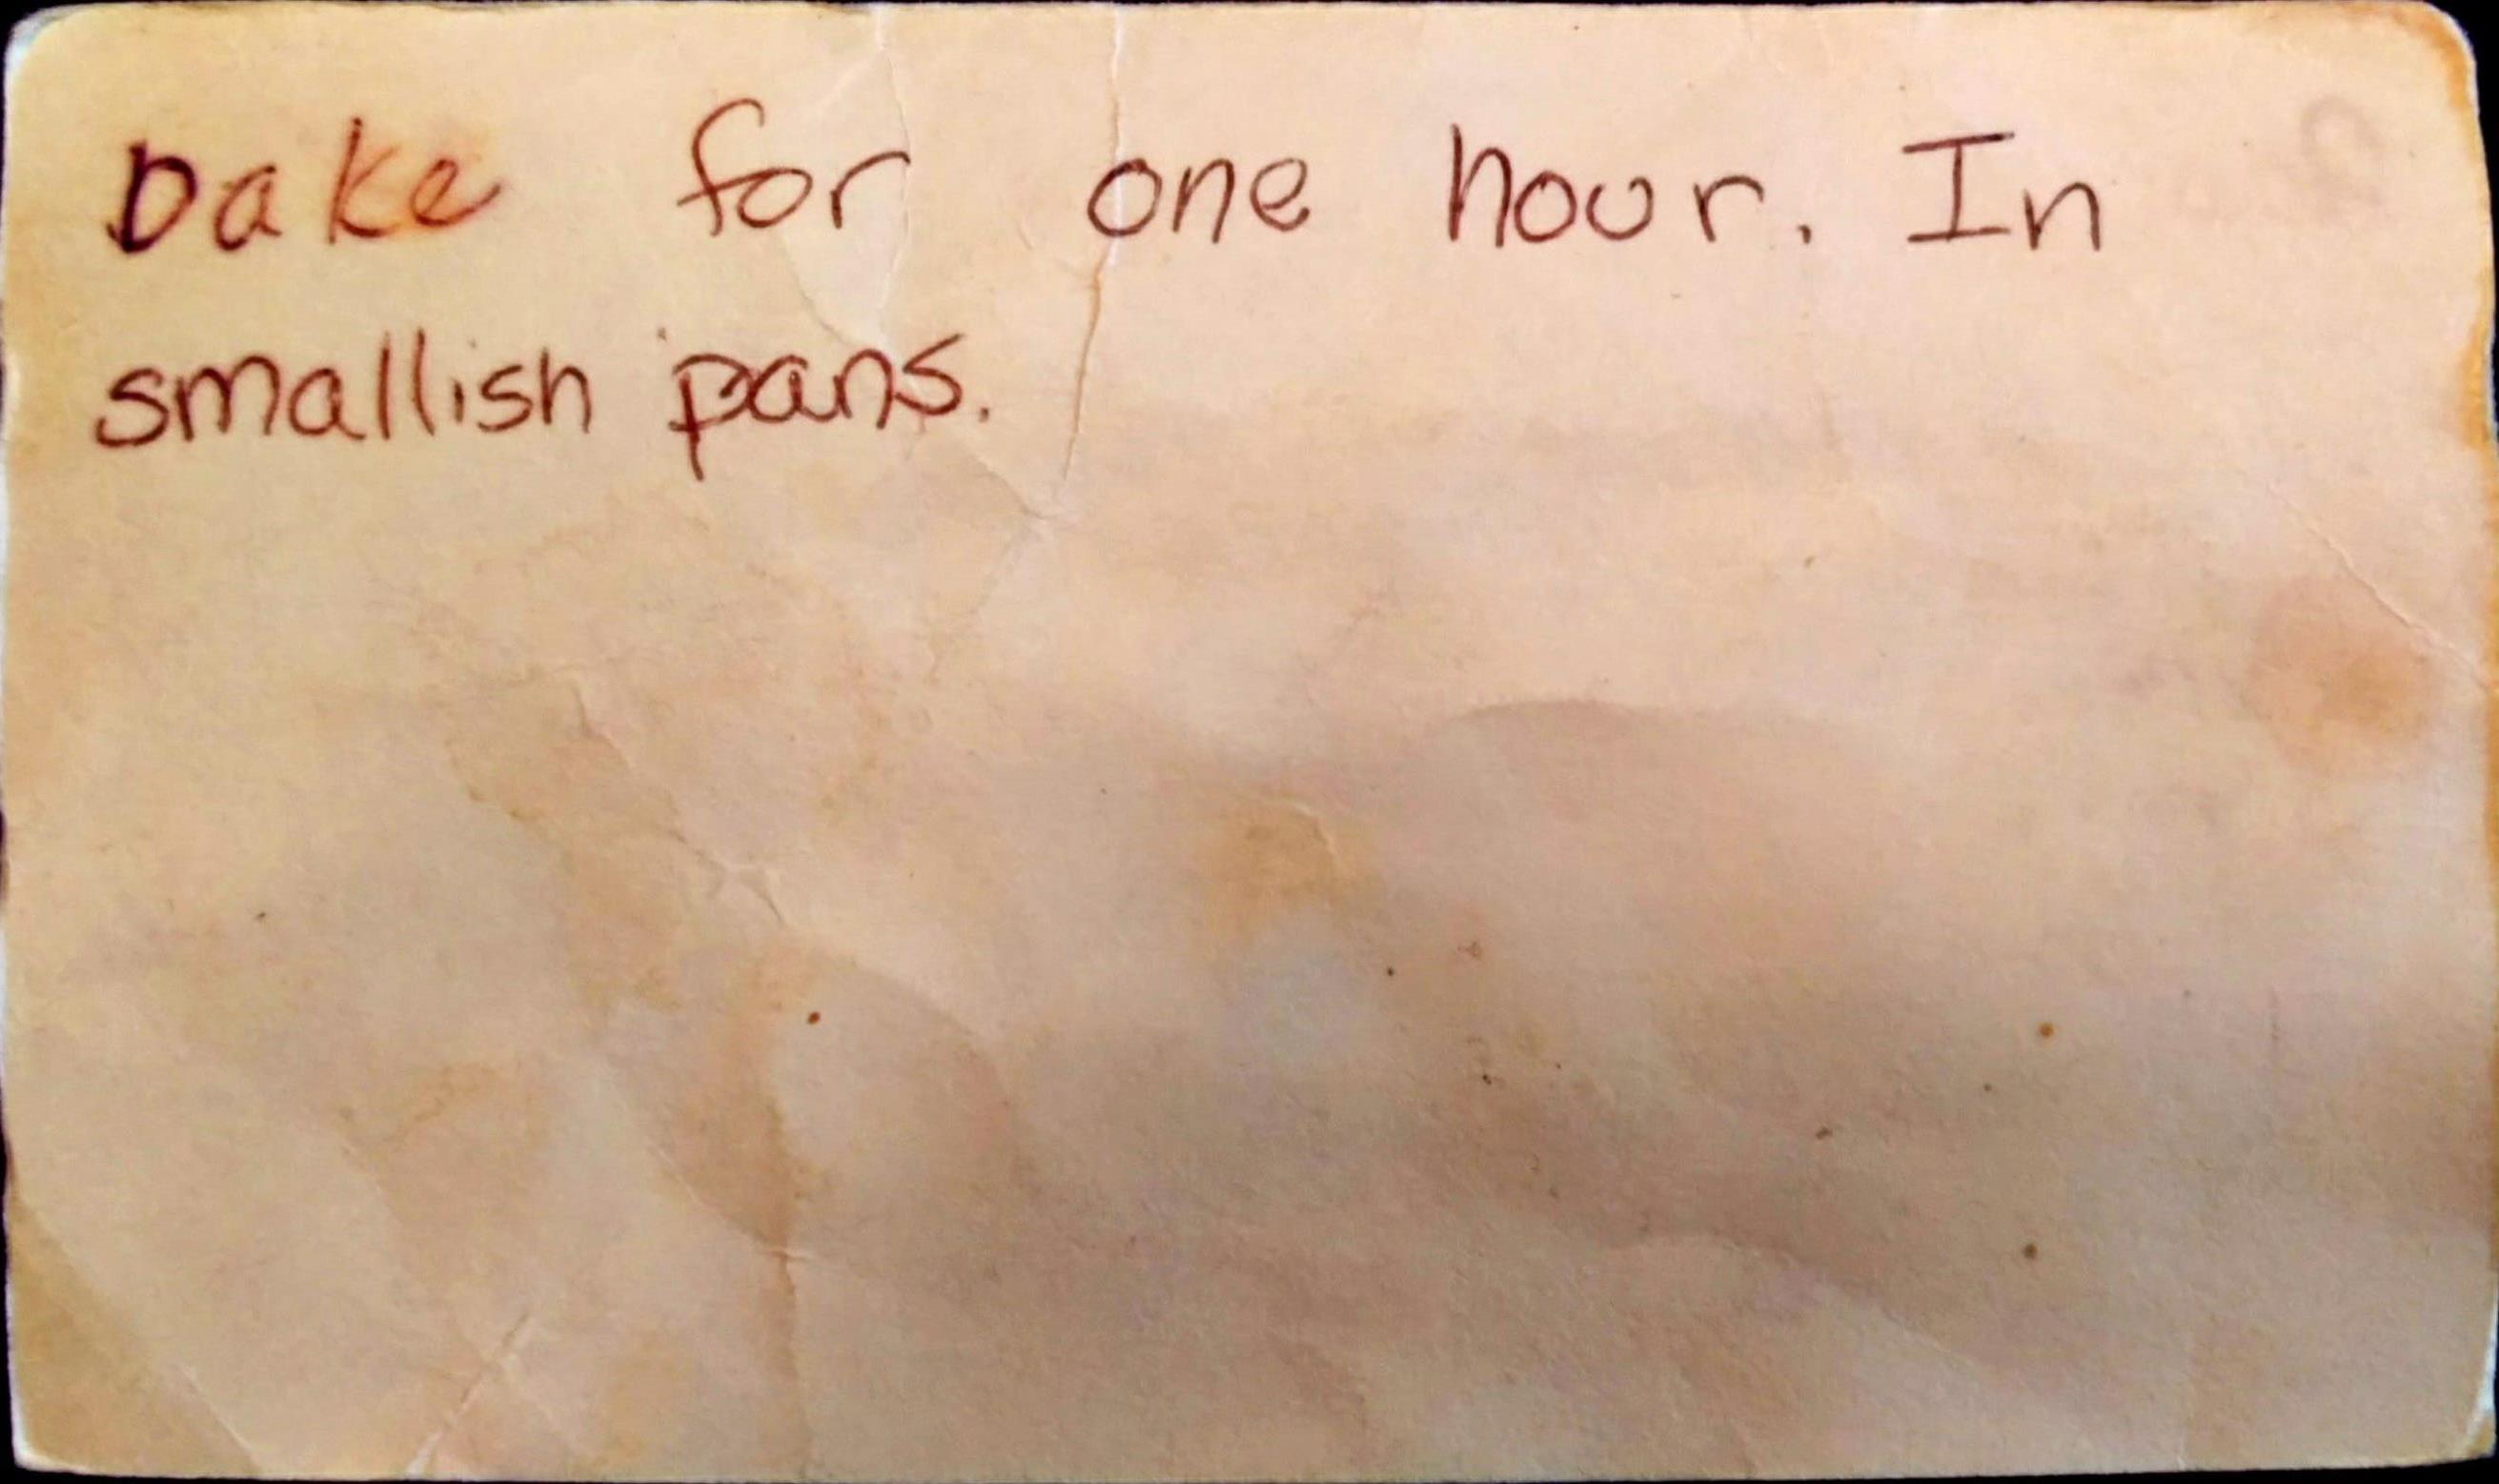 bake for one hour. In
smallish pans.